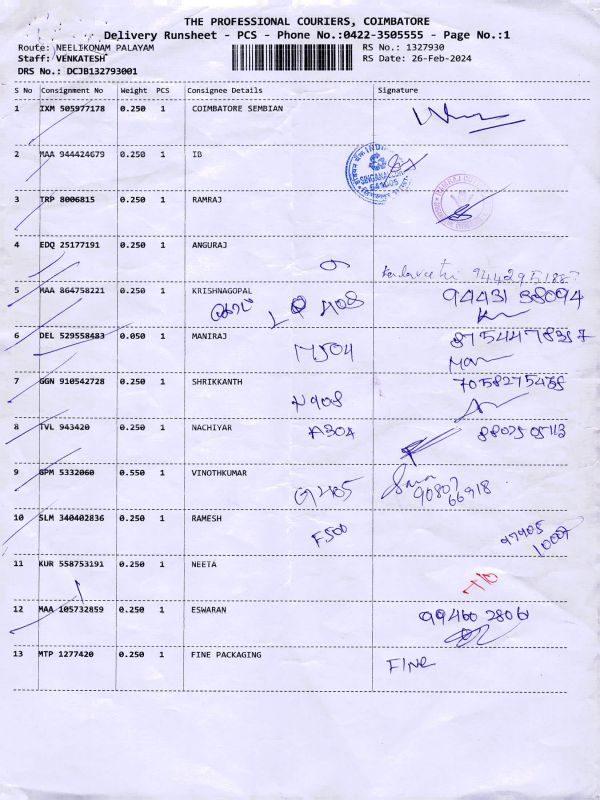 THE PROFESSIONAL COURIERS, COIMBATORE
Delivery Runsheet - PCS - Phone No.:0422-3505555 - Page No.:1
Route: NEELIKONAM PALAYAM RS No.: 1327930
Staff: VENKATESH RS Date: 26-Feb-2024
DRS No.: DCJB132793001
S No Consignment No Weight PCS Consignee Details Signature
1 IXM 505977178 0.250 1 COIMBATORE SEMBIAN
2 MAA 944424679 0.250 1 IB
3 TRP 8006815 0.250 1 RAMRAJ
4 EDQ 25177191 0.250 1 ANGURAJ
5 MAA 864758221 0.250 1 KRISHNAGOPAL
94431 38094
6 DEL 529558483 0.050 1 MANIRAJ
N504
7 GGN 910542728 0.250 1 SHRIKKANTH
N908
8 TVL 943420 0.250 1 NACHIYAR A304
9 BPM 5332060 0.550 1 VINOTHKUMAR
90807
66918
10 SLM 340402836 0.250 1 RAMESH
F500 97905
10007
11 KUR 558753191 0.250 1 NEETA
12 MAA 105732859 0.250 1 ESWARAN
99460 28061
13 MTP 1277420 0.250 1 FINE PACKAGING
FINE